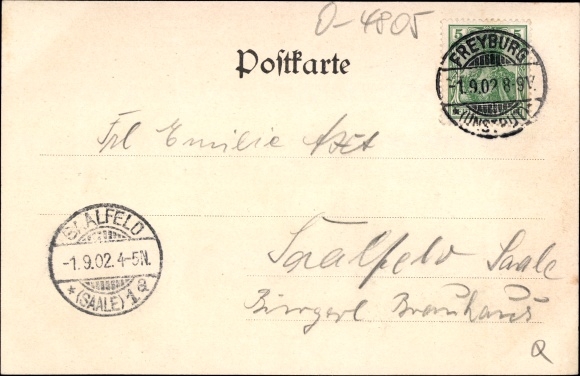 O-4805
5 5
FREYBURG
-1.9.02 8-9V.
*(UNSTRUT)*
Postkarte
Frl Emilie Axt
SAALFELD
-1.9.02. 4-5N.
*(SAALE) 1a
Saalfeld Saale
Bürgerl Brauhaus
Q